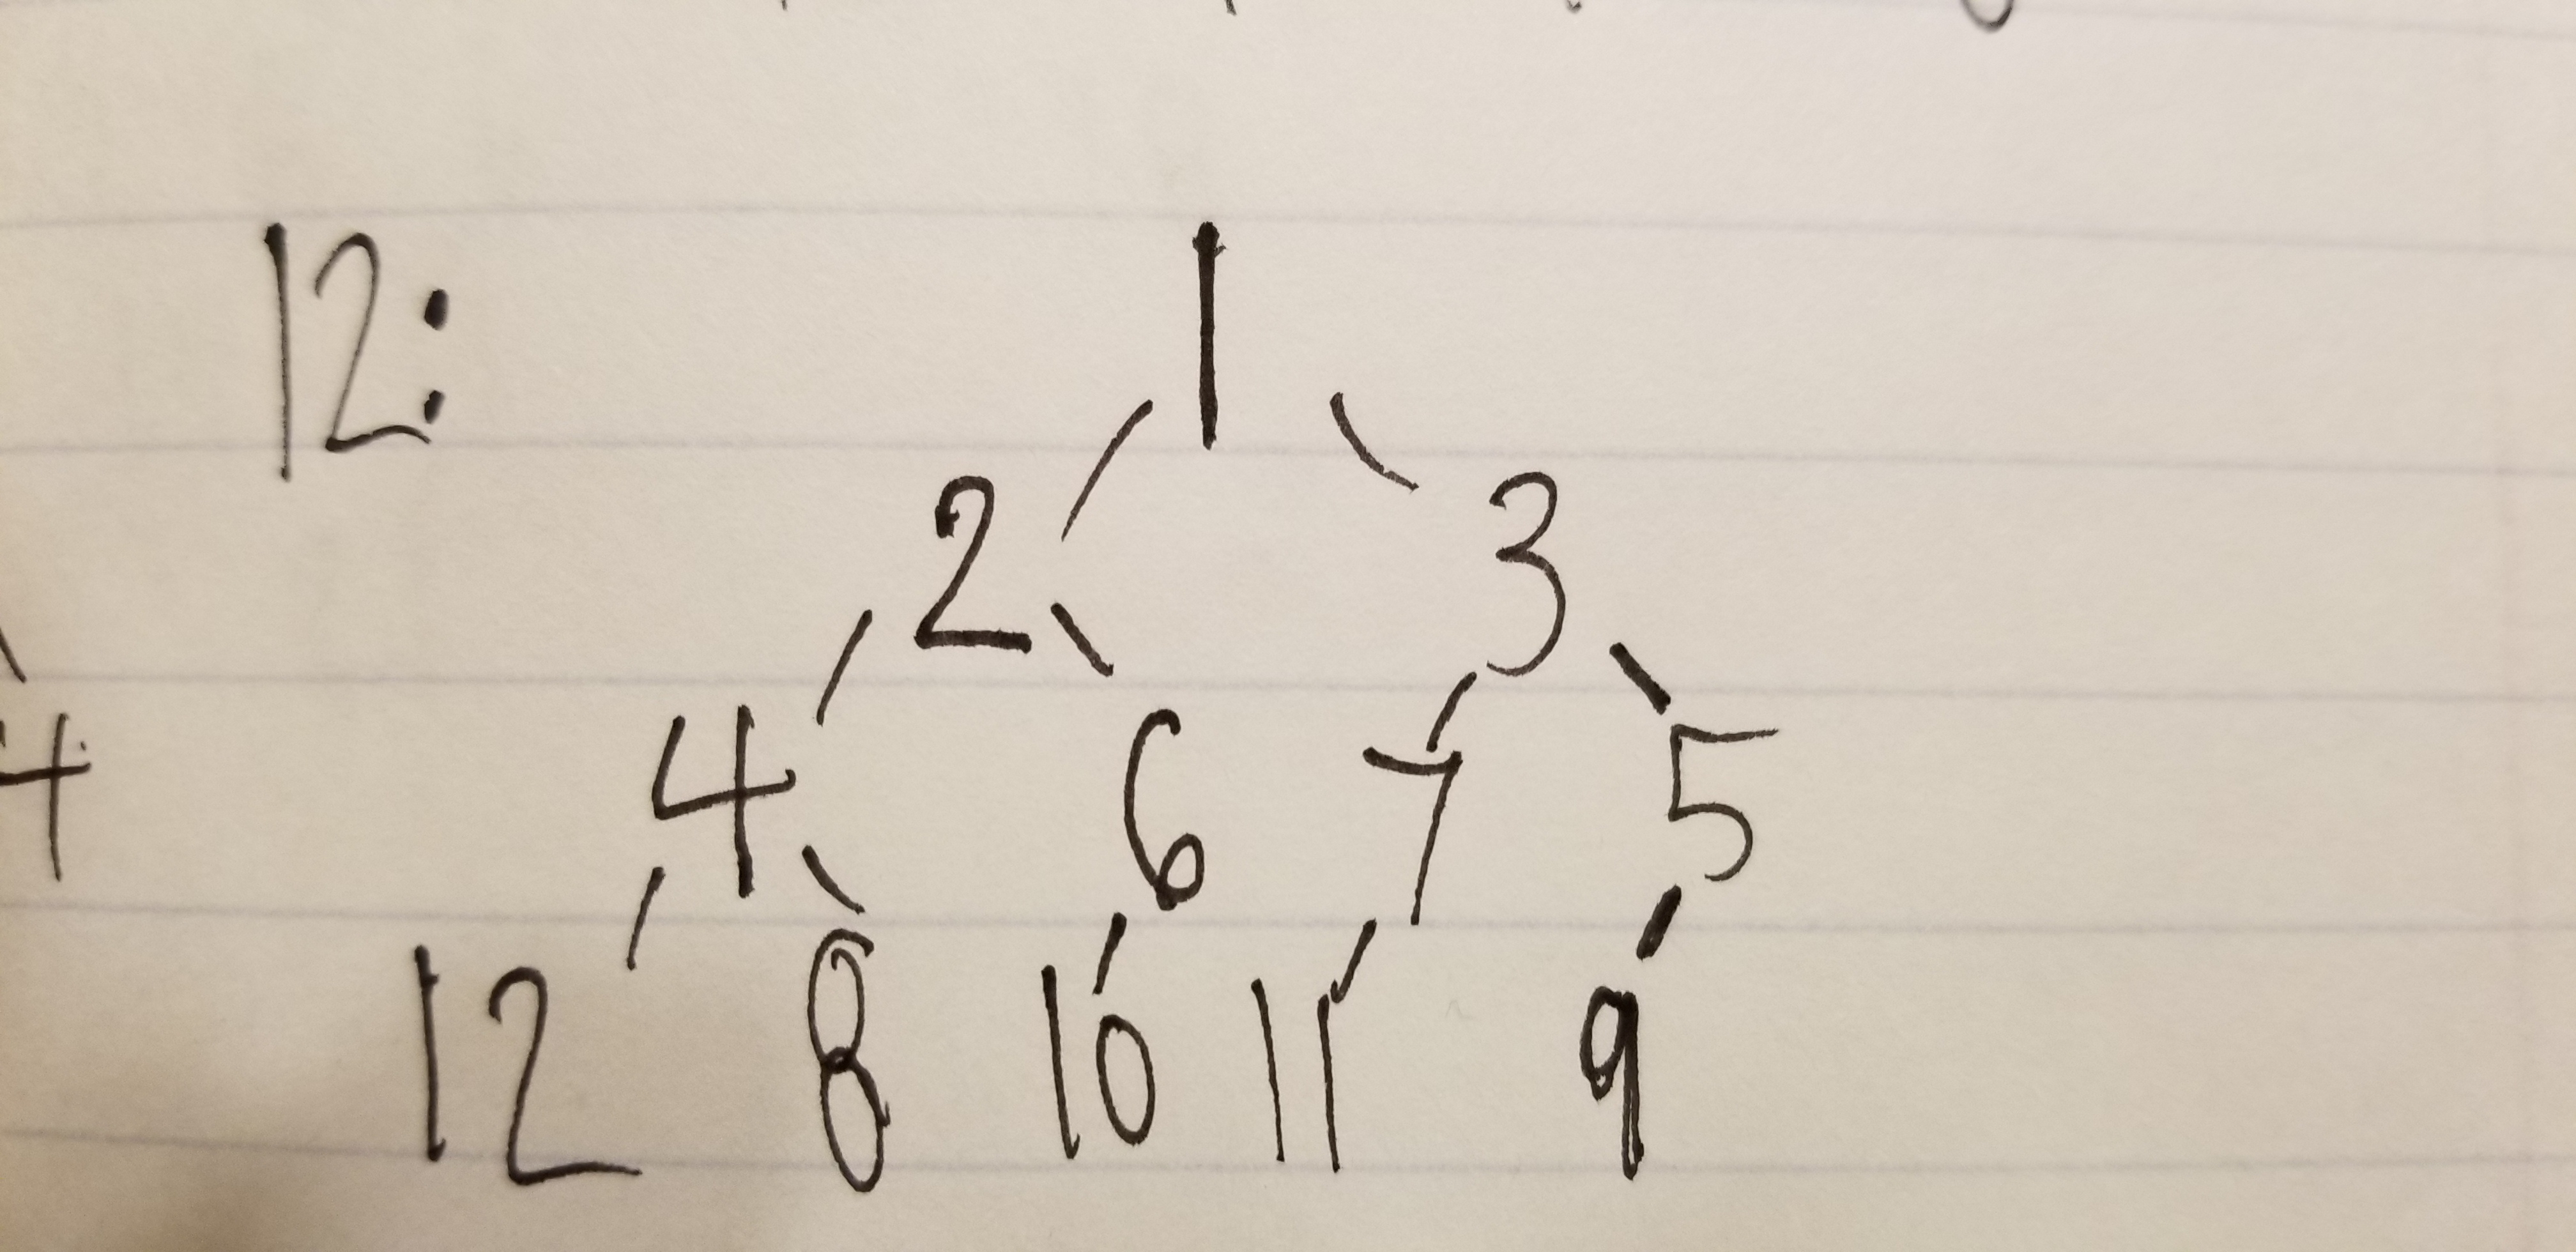 12: 1
2 3
4 6 7 5
4
12 8 10 11 9